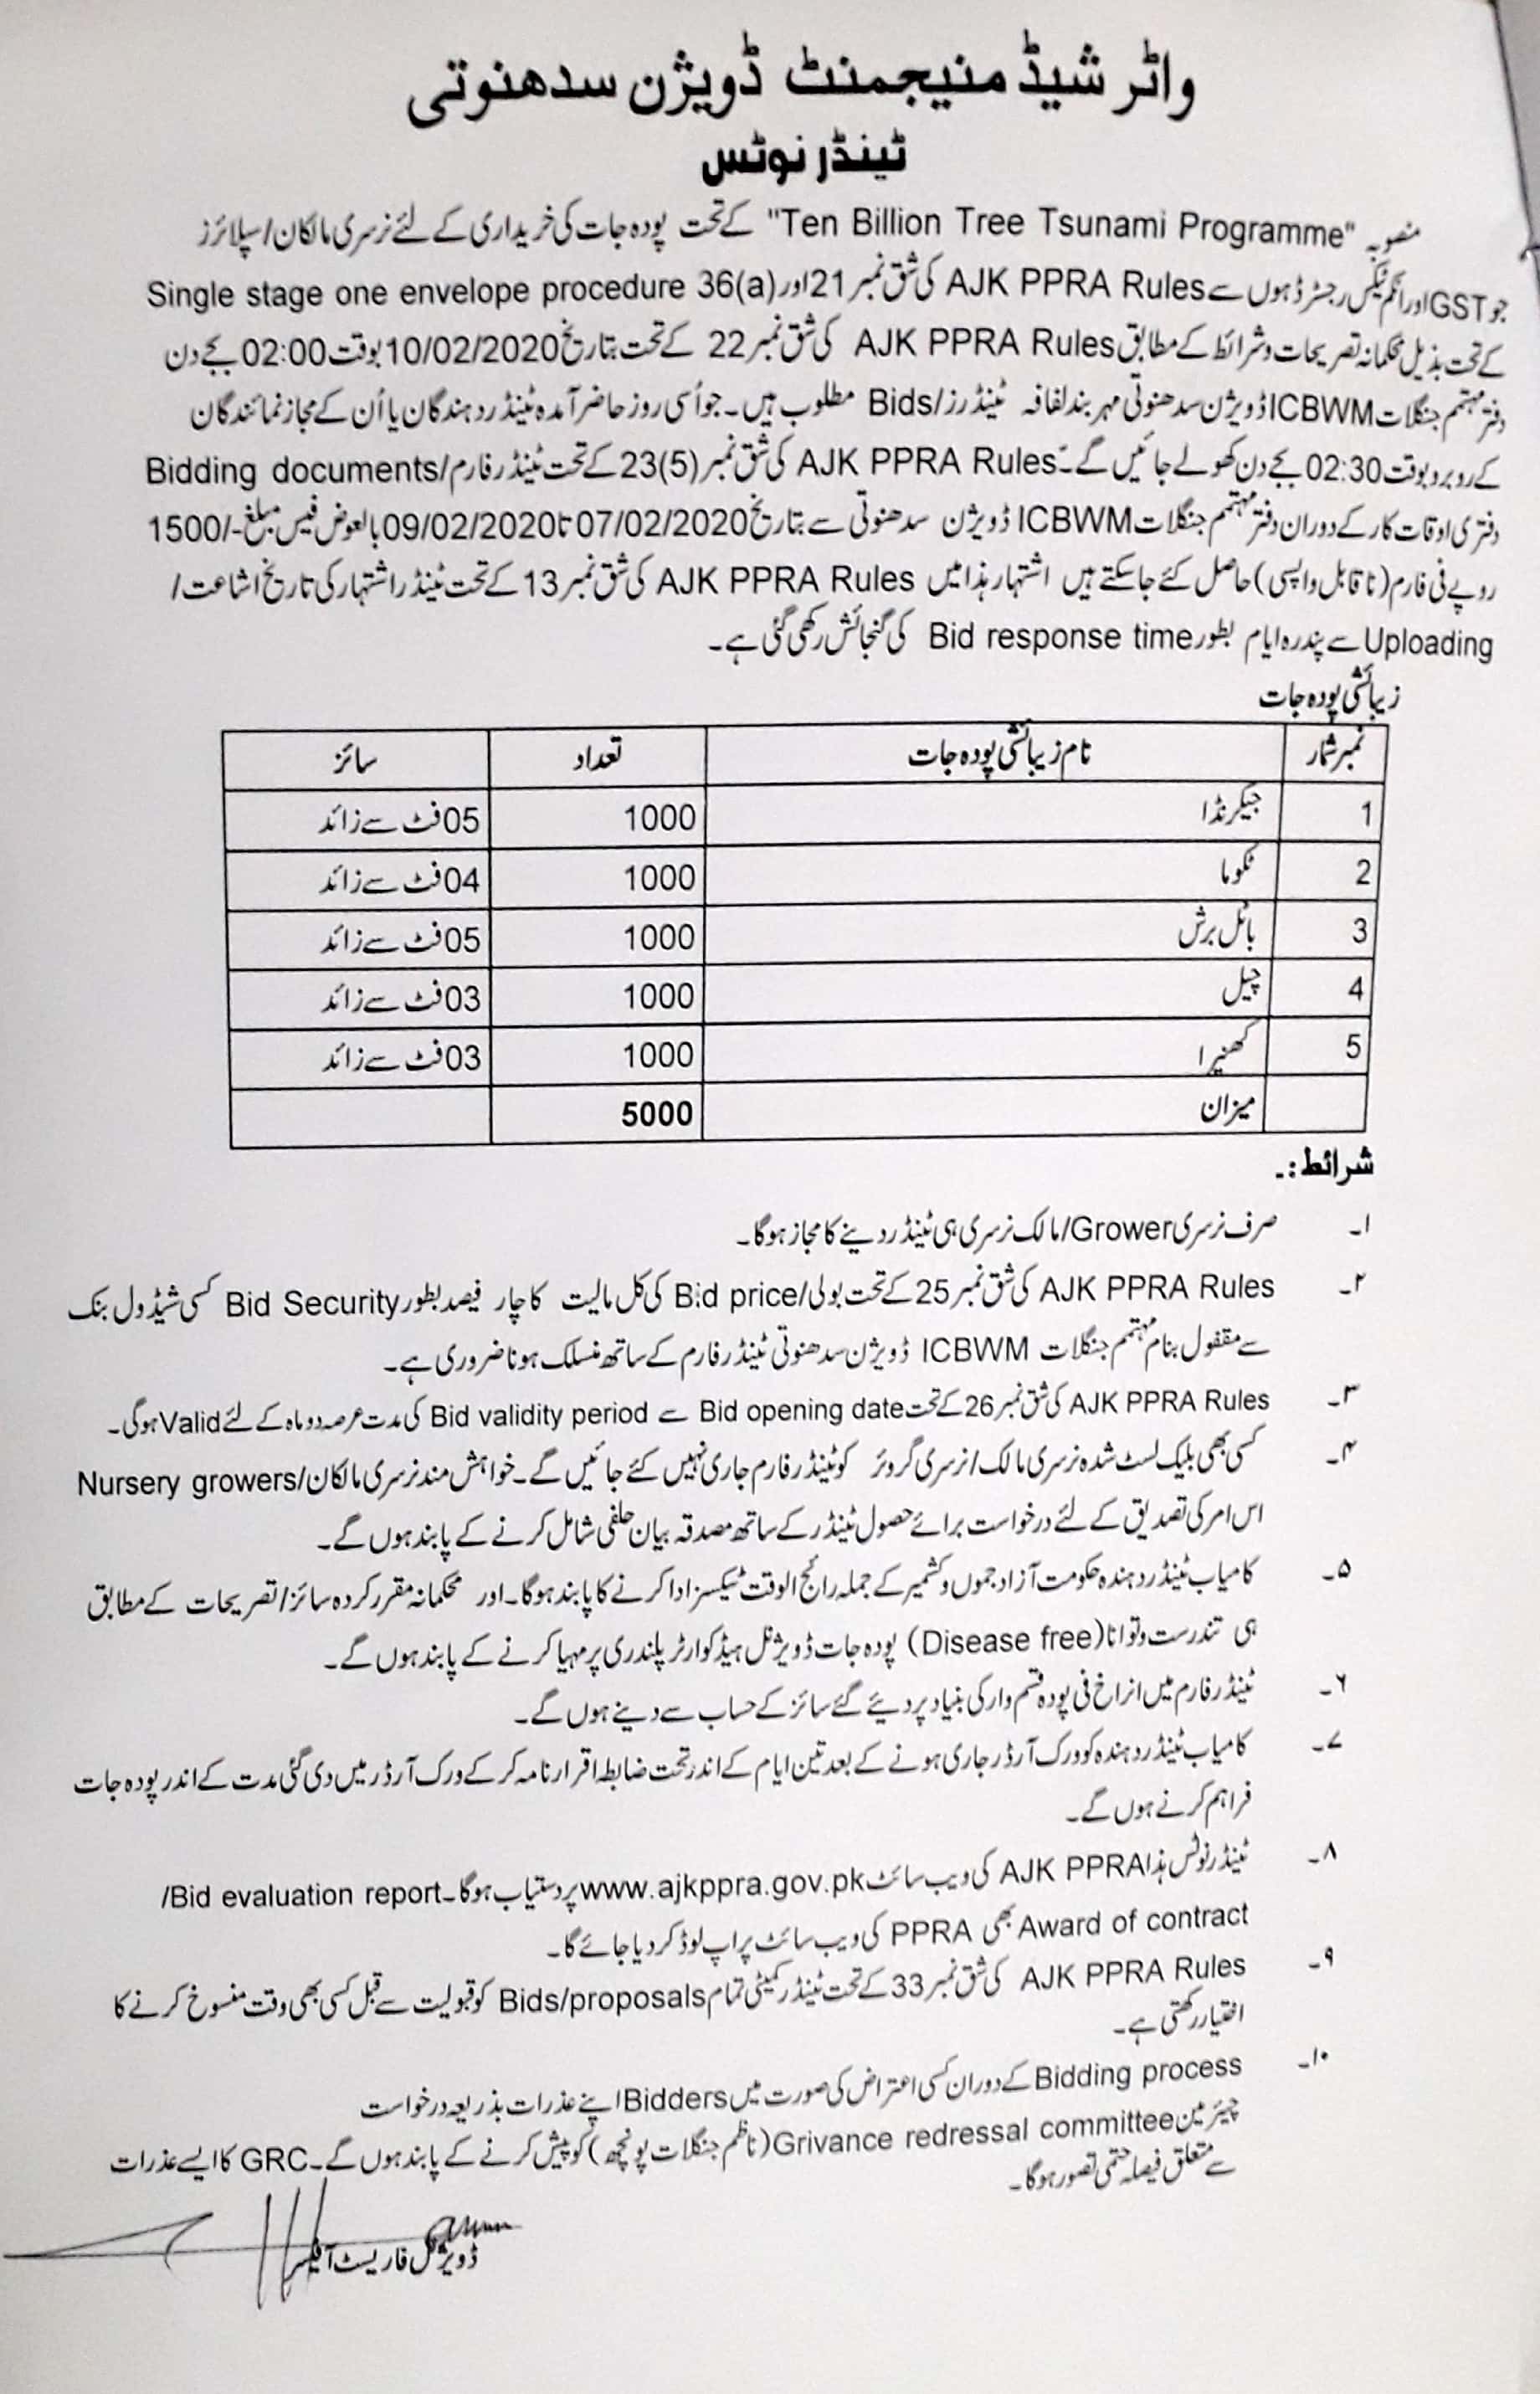 واٹر شیڈ منیجمنٹ ڈویژن سدھنوتی
ٹینڈر نوٹس
منصوبہ "Ten Billion Tree Tsunami Programme" کے تحت پودہ جات کی خریداری کے لئے نرسری مالکان/سپلائرز
جو GST اور انکم ٹیکس رجسٹرڈ ہوں سے AJK PPRA Rules کی شق نمبر 21 اور Single stage one envelope procedure 36(a)
کے تحت بذیل محکمانہ تصریحات و شرائط کے مطابق AJK PPRA Rules کی شق نمبر 22 کے تحت بتاریخ 10/02/2020 بوقت 02:00 بجے دن
دفتر مہتمم جنگلات ICBWM ڈویژن سدھنوتی مہر بند لفافہ ٹینڈرز/Bids مطلوب ہیں۔ جو اُسی روز حاضر آمدہ ٹینڈر دہندگان یا اُن کے مجاز نمائندگان
کے روبرو بوقت 02:30 بجے دن کھولے جائیں گے۔ AJK PPRA Rules کی شق نمبر 23(5) کے تحت ٹینڈر فارم/Bidding documents
دفتری اوقات کار کے دوران دفتر مہتمم جنگلات ICBWM ڈویژن سدھنوتی سے بتاریخ 07/02/2020 تا 09/02/2020 بالعوض فیس مبلغ -/1500
روپے فی فارم (ناقابل واپسی) حاصل کئے جا سکتے ہیں اشتہار ہذا میں AJK PPRA Rules کی شق نمبر 13 کے تحت ٹینڈر اشتہار کی تاریخ اشاعت/
Uploading سے پندرہ ایام بطور Bid response time کی گنجائش رکھی گئی ہے۔
زیبائشی پودہ جات
نمبر شمار نام زیبائشی پودہ جات تعداد سائز
1 جیکرنڈا 1000 05 فٹ سے زائد
2 ٹکوما 1000 04 فٹ سے زائد
3 باٹل برش 1000 05 فٹ سے زائد
4 چیل 1000 03 فٹ سے زائد
5 کھنیرا 1000 03 فٹ سے زائد
میزان 5000
شرائط:۔
۱۔ صرف نرسری Grower/مالک نرسری ہی ٹینڈر دینے کا مجاز ہوگا۔
۲۔ AJK PPRA Rules کی شق نمبر 25 کے تحت بولی/Bid price کی کل مالیت کا چار فیصد بطور Bid Security کسی شیڈول بنک
سے مقفول بنام مہتمم جنگلات ICBWM ڈویژن سدھنوتی ٹینڈر فارم کے ساتھ منسلک ہونا ضروری ہے۔
۳۔ AJK PPRA Rules کی شق نمبر 26 کے تحت Bid opening date سے Bid validity period کی مدت عرصہ دو ماہ کے لئے Valid ہوگی۔
۴۔ کسی بھی بلیک لسٹ شدہ نرسری مالک/نرسری گروئر کو ٹینڈر فارم جاری نہیں کئے جائیں گے۔ خواہش مند نرسری مالکان/Nursery growers
اس امر کی تصدیق کے لئے درخواست برائے حصول ٹینڈر کے ساتھ مصدقہ بیان حلفی شامل کرنے کے پابند ہوں گے۔
۵۔ کامیاب ٹینڈر دہندہ حکومت آزاد جموں و کشمیر کے جملہ رائج الوقت ٹیکسز ادا کرنے کا پابند ہوگا۔ اور محکمانہ مقرر کردہ سائز/تصریحات کے مطابق
ہی تندرست و توانا (Disease free) پودہ جات ڈویژنل ہیڈکوارٹر پلندری پر مہیا کرنے کے پابند ہوں گے۔
۶۔ ٹینڈر فارم میں انراخ فی پودہ قسم وار کی بنیاد پر دیئے گئے سائز کے حساب سے دینے ہوں گے۔
۷۔ کامیاب ٹینڈر دہندہ کو ورک آرڈر جاری ہونے کے بعد تین ایام کے اندر تحت ضابطہ اقرار نامہ کر کے ورک آرڈر میں دی گئی مدت کے اندر پودہ جات
فراہم کرنے ہوں گے۔
۸۔ ٹینڈر نوٹس ہذا AJK PPRA کی ویب سائٹ www.ajkppra.gov.pk پر دستیاب ہوگا۔ Bid evaluation report/
Award of contract بھی PPRA کی ویب سائٹ پر اپ لوڈ کر دیا جائے گا۔
۹۔ AJK PPRA Rules کی شق نمبر 33 کے تحت ٹینڈر کمیٹی تمام Bids/proposals کو قبولیت سے قبل کسی بھی وقت منسوخ کرنے کا
اختیار رکھتی ہے۔
۱۰۔ Bidding process کے دوران کسی اعتراض کی صورت میں Bidders اپنے عذرات بذریعہ درخواست
چیئرمین Grivance redressal committee (ناظم جنگلات پونچھ) کو پیش کرنے کے پابند ہوں گے۔ GRC کا ایسے عذرات
سے متعلق فیصلہ حتمی تصور ہوگا۔
ڈویژنل فاریسٹ آفیسر